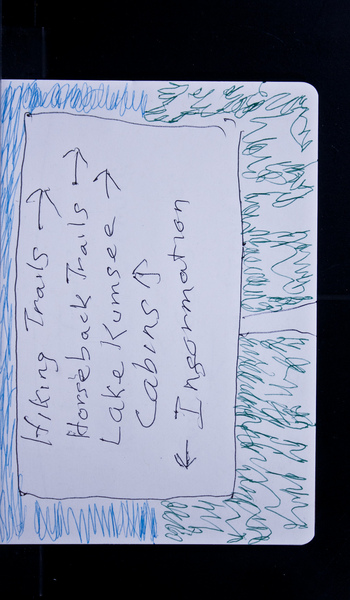 Hiking Trails →
Horseback Trails →
Lake Kumsee →
Cabins ↑
← Information